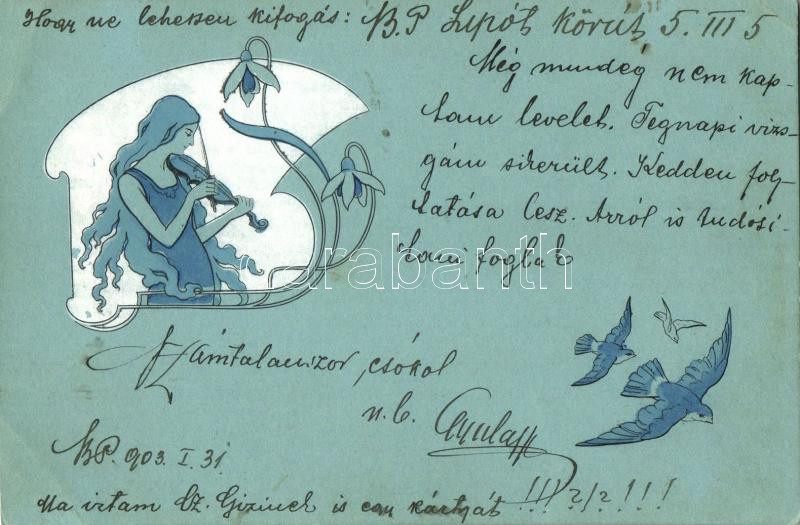 Hogy ne lehessen kifogás: B.P Lipót körút 5. III 5
Még mindég nem kap-
tam levelet. Tegnapi vizs-
gám sikerült. Kedden foly-
tatása lesz. Arról is tudósi-
tani foglak
darabanth
Számtalanszor csókol
Gyula
BP. 903. I. 31.
Ma irtam Sz. Gizinek is egy kártyát !!!! ? ! ? !!!